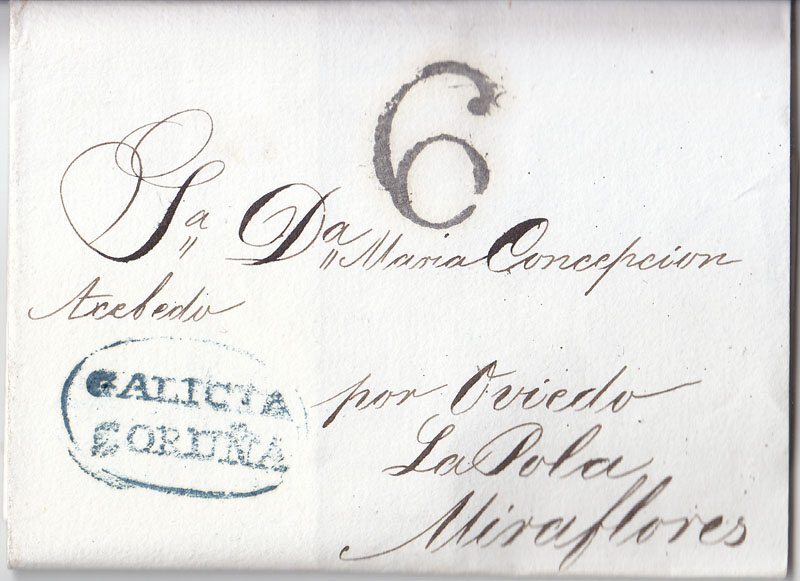 6
Sª Dª Maria Concepcion
Acebedo
GALICIA
CORUÑA
por Oviedo
La Pola
Miraflores